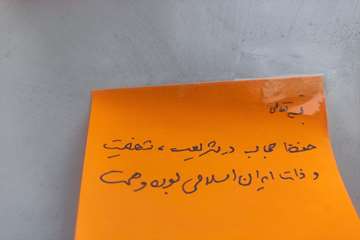 بسمه تعالی
حفظ حجاب در شریعت، شخصیت
و ذات ایران اسلامی بوده و هست